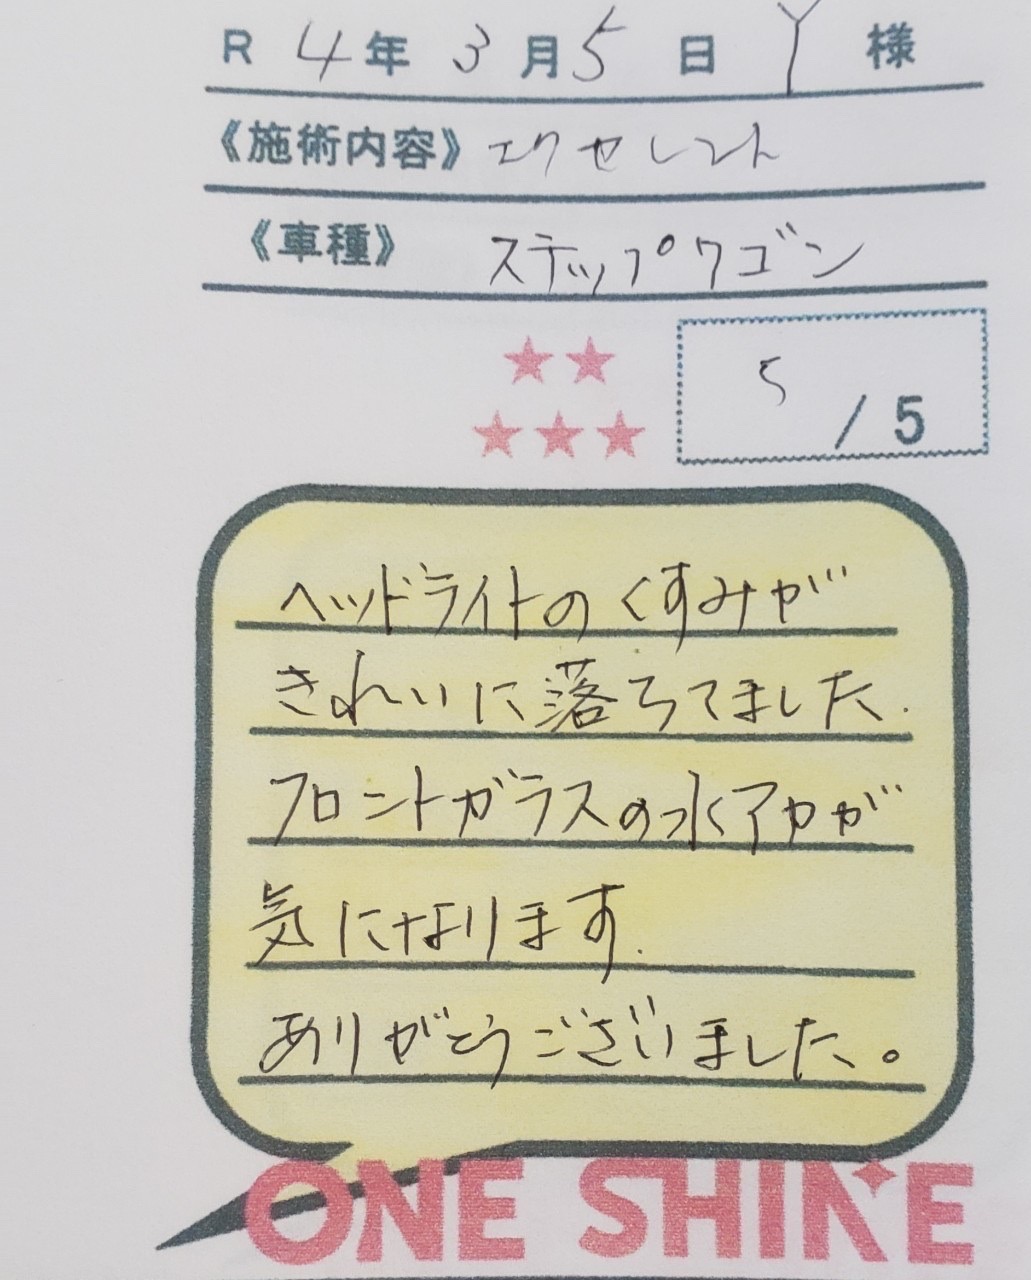 R 4年 3月5日 Y 様
《施術内容》エクセレント
《車種》 ステップワゴン
★★
★★★
5 / 5
ヘッドライトのくすみが
きれいに落ちてました.
フロントガラスの水アカが
気になります.
ありがとうございました。
ONE SHINE